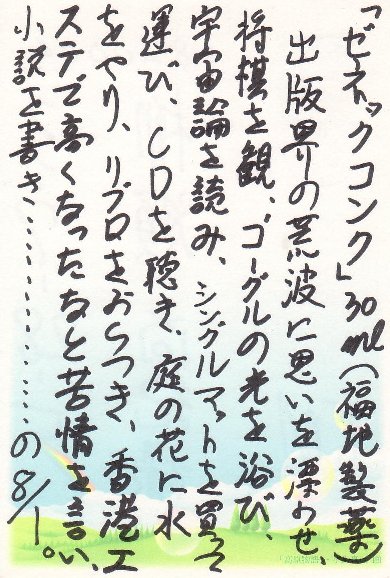 「ゼネックコンク」30ml(福地製薬)
出版界の荒波に思いを漂わせ、
将棋を観、ゴーグルの光を浴び、
宇宙論を読み、シングルマットを買って
運び、CDを聴き、庭の花に水
をやり、リブロをおらつき、香港エ
ステで高くなったなと苦情を言い、
小説を書き……………の8/1。